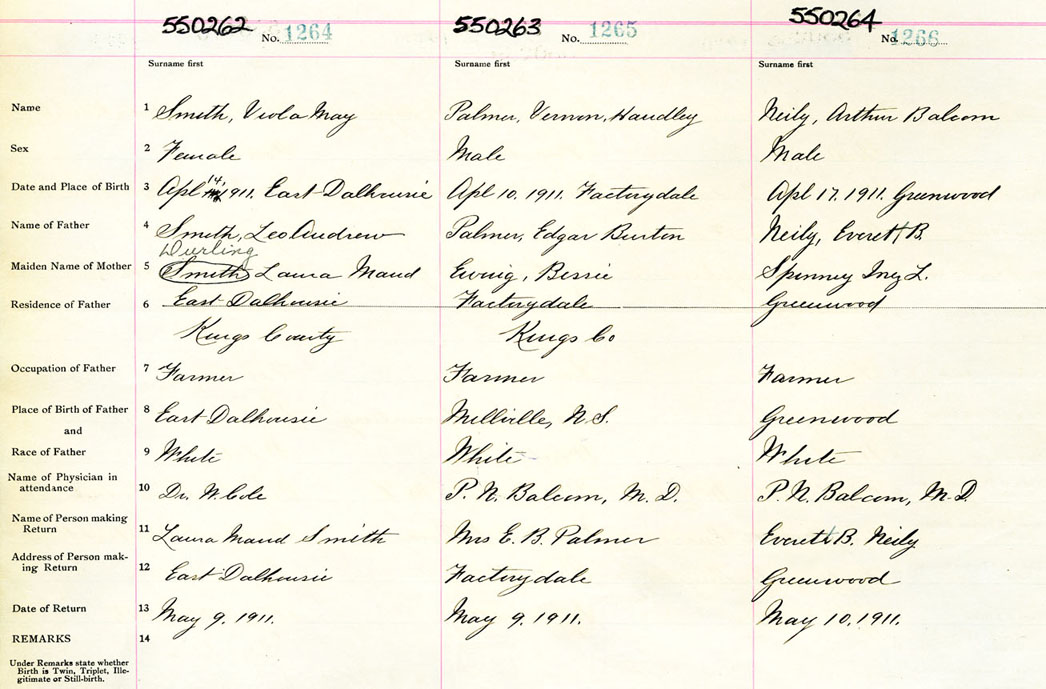 550262 No. 1264 550263 No. 1265 550264 No. 1266
Surname first Surname first Surname first
Name 1 Smith, Viola May Palmer, Vernon, Handley Neily, Arthur Balcom
Sex 2 Female Male Male
Date and Place of Birth 3 Apl 14, 1911. East Dalhousie Apl 10. 1911. Factorydale Apl 17. 1911. Greenwood
Name of Father 4 Smith, Leo Andrew Palmer, Edgar Burton Neily, Everett B.
Durling
Maiden Name of Mother 5 Smith Laura Maud Ewing, Bessie Spinney Inez L.
Residence of Father 6 East Dalhousie Factorydale Greenwood
Kings County Kings Co
Occupation of Father 7 Farmer Farmer Farmer
Place of Birth of Father 8 East Dalhousie Millville, N.S. Greenwood
and
Race of Father 9 White White White
Name of Physician in
attendance 10 Dr. W. Cole P. N. Balcom, M. D. P. N. Balcom, M. D
Name of Person making
Return 11 Laura Maud Smith Mrs E. B. Palmer Everett B. Neily
Address of Person mak-
ing Return 12 East Dalhousie Factorydale Greenwood
Date of Return 13 May 9, 1911. May 9. 1911. May 10, 1911.
REMARKS 14
Under Remarks state whether
Birth is Twin, Triplet, Ille-
gitimate or Still-birth.